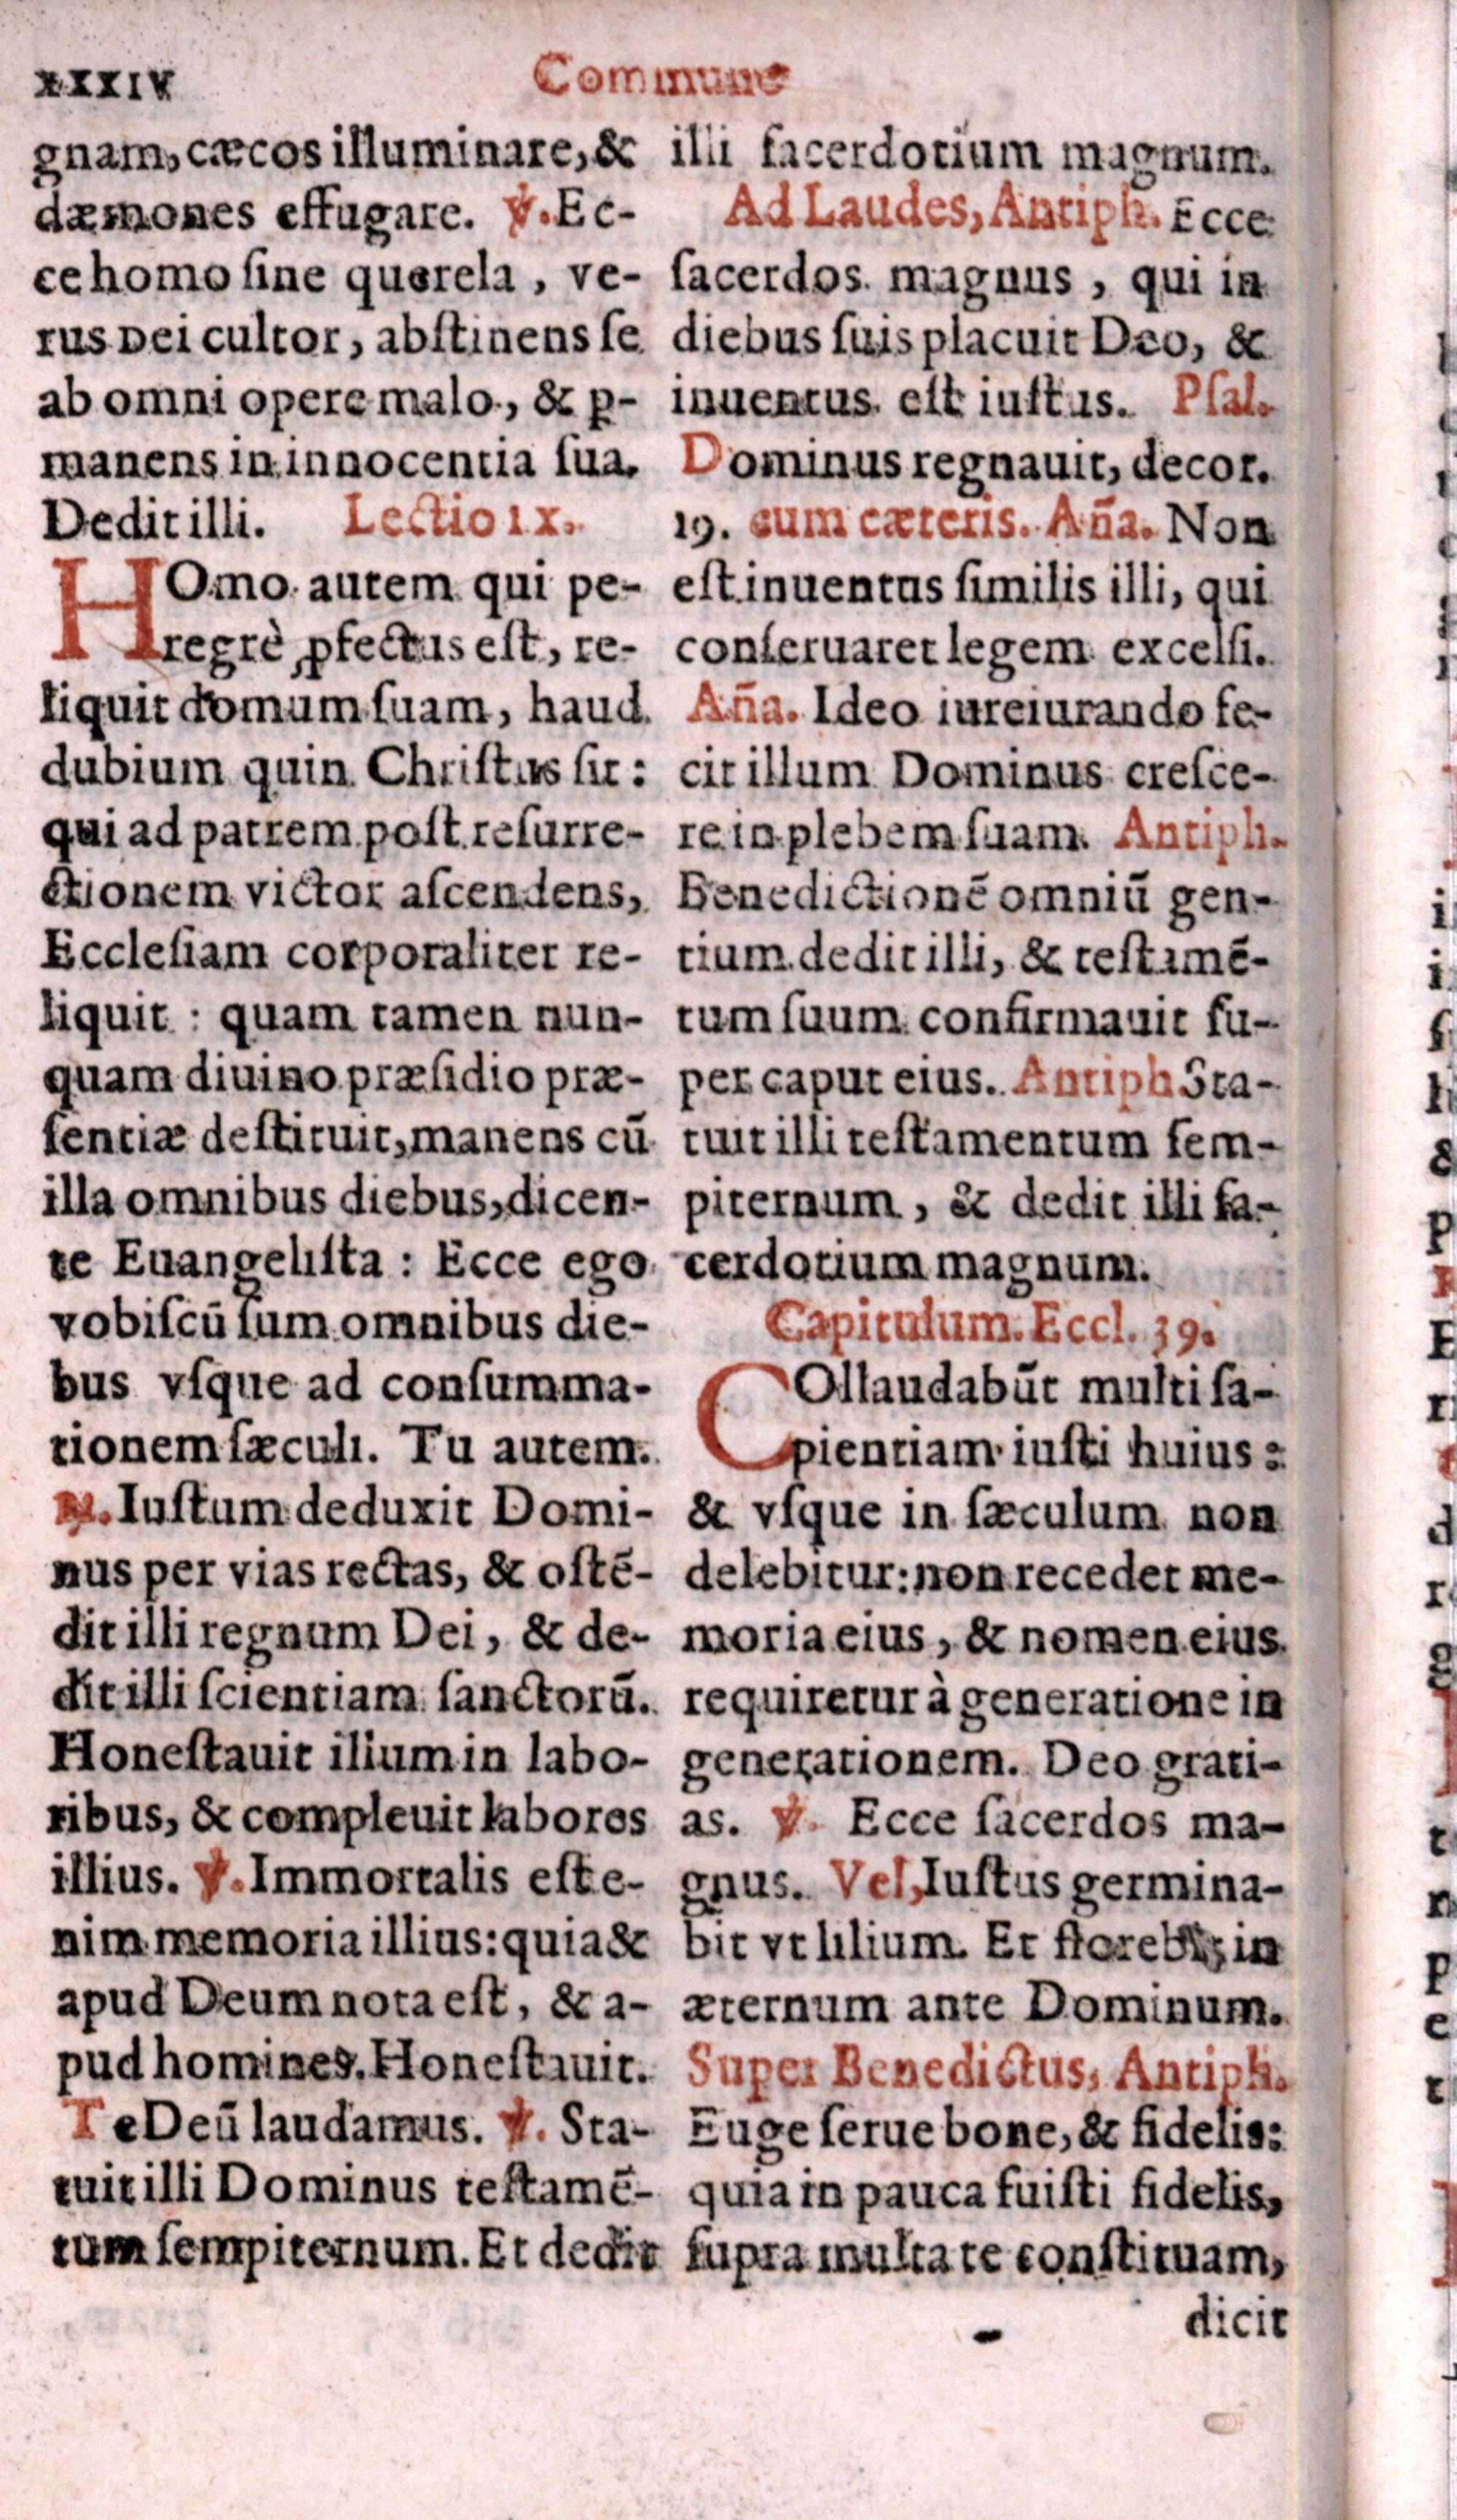 xxxiv
Commune
gnam, cæcos illuminare, &
dæmones effugare. ℣. Ec-
ce homo ſine querela, ve-
rus Dei cultor, abſtinens ſe
ab omni opere malo, & ꝑ-
manens in innocentia ſua.
Dedit illi. Lectio ix.
HOmo autem qui pe-
regrè ꝓfectus eſt, re-
liquit domum ſuam, haud
dubium quin Chriſtus ſit:
qui ad patrem poſt reſurre-
ctionem victor aſcendens,
Eccleſiam corporaliter re-
liquit: quam tamen nun-
quam diuino præſidio præ-
ſentiæ deſtituit, manens cū
illa omnibus diebus, dicen-
te Euangeliſta: Ecce ego
vobiſcū ſum omnibus die-
bus vſque ad conſumma-
tionem ſæculi. Tu autem.
℞. Iuſtum deduxit Domi-
nus per vias rectas, & oſtē-
dit illi regnum Dei, & de-
dit illi ſcientiam ſanctorū.
Honeſtauit illum in labo-
ribus, & compleuit labores
illius. ℣. Immortalis eſt e-
nim memoria illius: quia &
apud Deum nota eſt, & a-
pud homines. Honeſtauit.
Te Deū laudamus. ℣. Sta-
tuit illi Dominus teſtamē-
tum ſempiternum. Et dedit
illi ſacerdotium magnum.
Ad Laudes, Antiph. Ecce
ſacerdos magnus, qui in
diebus ſuis placuit Deo, &
inuentus eſt iuſtus. Pſal.
Dominus regnauit, decor.
19. cum cæteris. Aña. Non
eſt inuentus ſimilis illi, qui
conſeruaret legem excelſi.
Aña. Ideo iureiurando fe-
cit illum Dominus creſce-
re in plebem ſuam. Antiph.
Benedictionē omniū gen-
tium dedit illi, & teſtamē-
tum ſuum confirmauit ſu-
per caput eius. Antiph. Sta-
tuit illi teſtamentum ſem-
piternum, & dedit illi ſa-
cerdotium magnum.
Capitulum. Eccl. 39.
COllaudabūt multi ſa-
pientiam iuſti huius:
& vſque in ſæculum non
delebitur: non recedet me-
moria eius, & nomen eius
requiretur à generatione in
generationem. Deo grati-
as. ℣. Ecce ſacerdos ma-
gnus. Vel, Iuſtus germina-
bit vt lilium. Et florebit in
æternum ante Dominum.
Super Benedictus, Antiph.
Euge ſerue bone, & fidelis:
quia in pauca fuiſti fidelis,
ſupra multa te conſtituam,
dicit